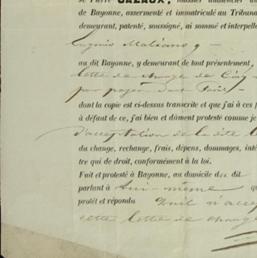 de Bayonne, assermenté et immatriculé au Tribuna
demeurant, patenté, soussigné, ai sommé et interpell
Eugenio
au dit Bayonne, y demeurant de tout présentement,
lettre de
dont la copie est ci-dessus transcrite et que j'ai à ces f
à défaut de ce, j'ai bien et dûment protesté comme je
d'acceptation de la dite
du change, rechange, frais, dépens, dommages, inté
tre qui de droit, conformément à la loi.
Fait et protesté à Bayonne, au domicile des dit
parlant à lui-même qu
protêt et répondu
cette lettre de change